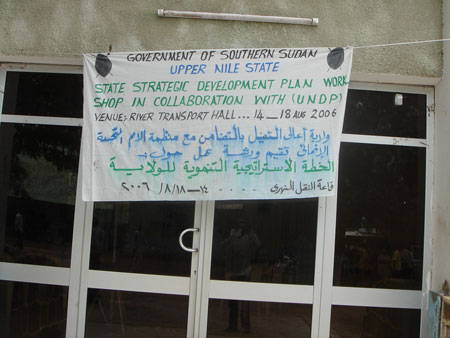 GOVERNMENT OF SOUTHERN SUDAN
UPPER NILE STATE
STATE STRATEGIC DEVELOPMENT PLAN WORK
SHOP IN COLLABORATION WITH (UNDP)
VENUE: RIVER TRANSPORT HALL... 14 — 18 AUG 2006
ولاية أعالى النيل بالتضامن مع منظمة الامم المتحدة
الإنمائى تقيم ورشة عمل حول :-
الخطة الاستراتيجية التنموية للولاية
قاعة النقل النهرى .... ١٤ — ٢٠٠٦/٨/١٨